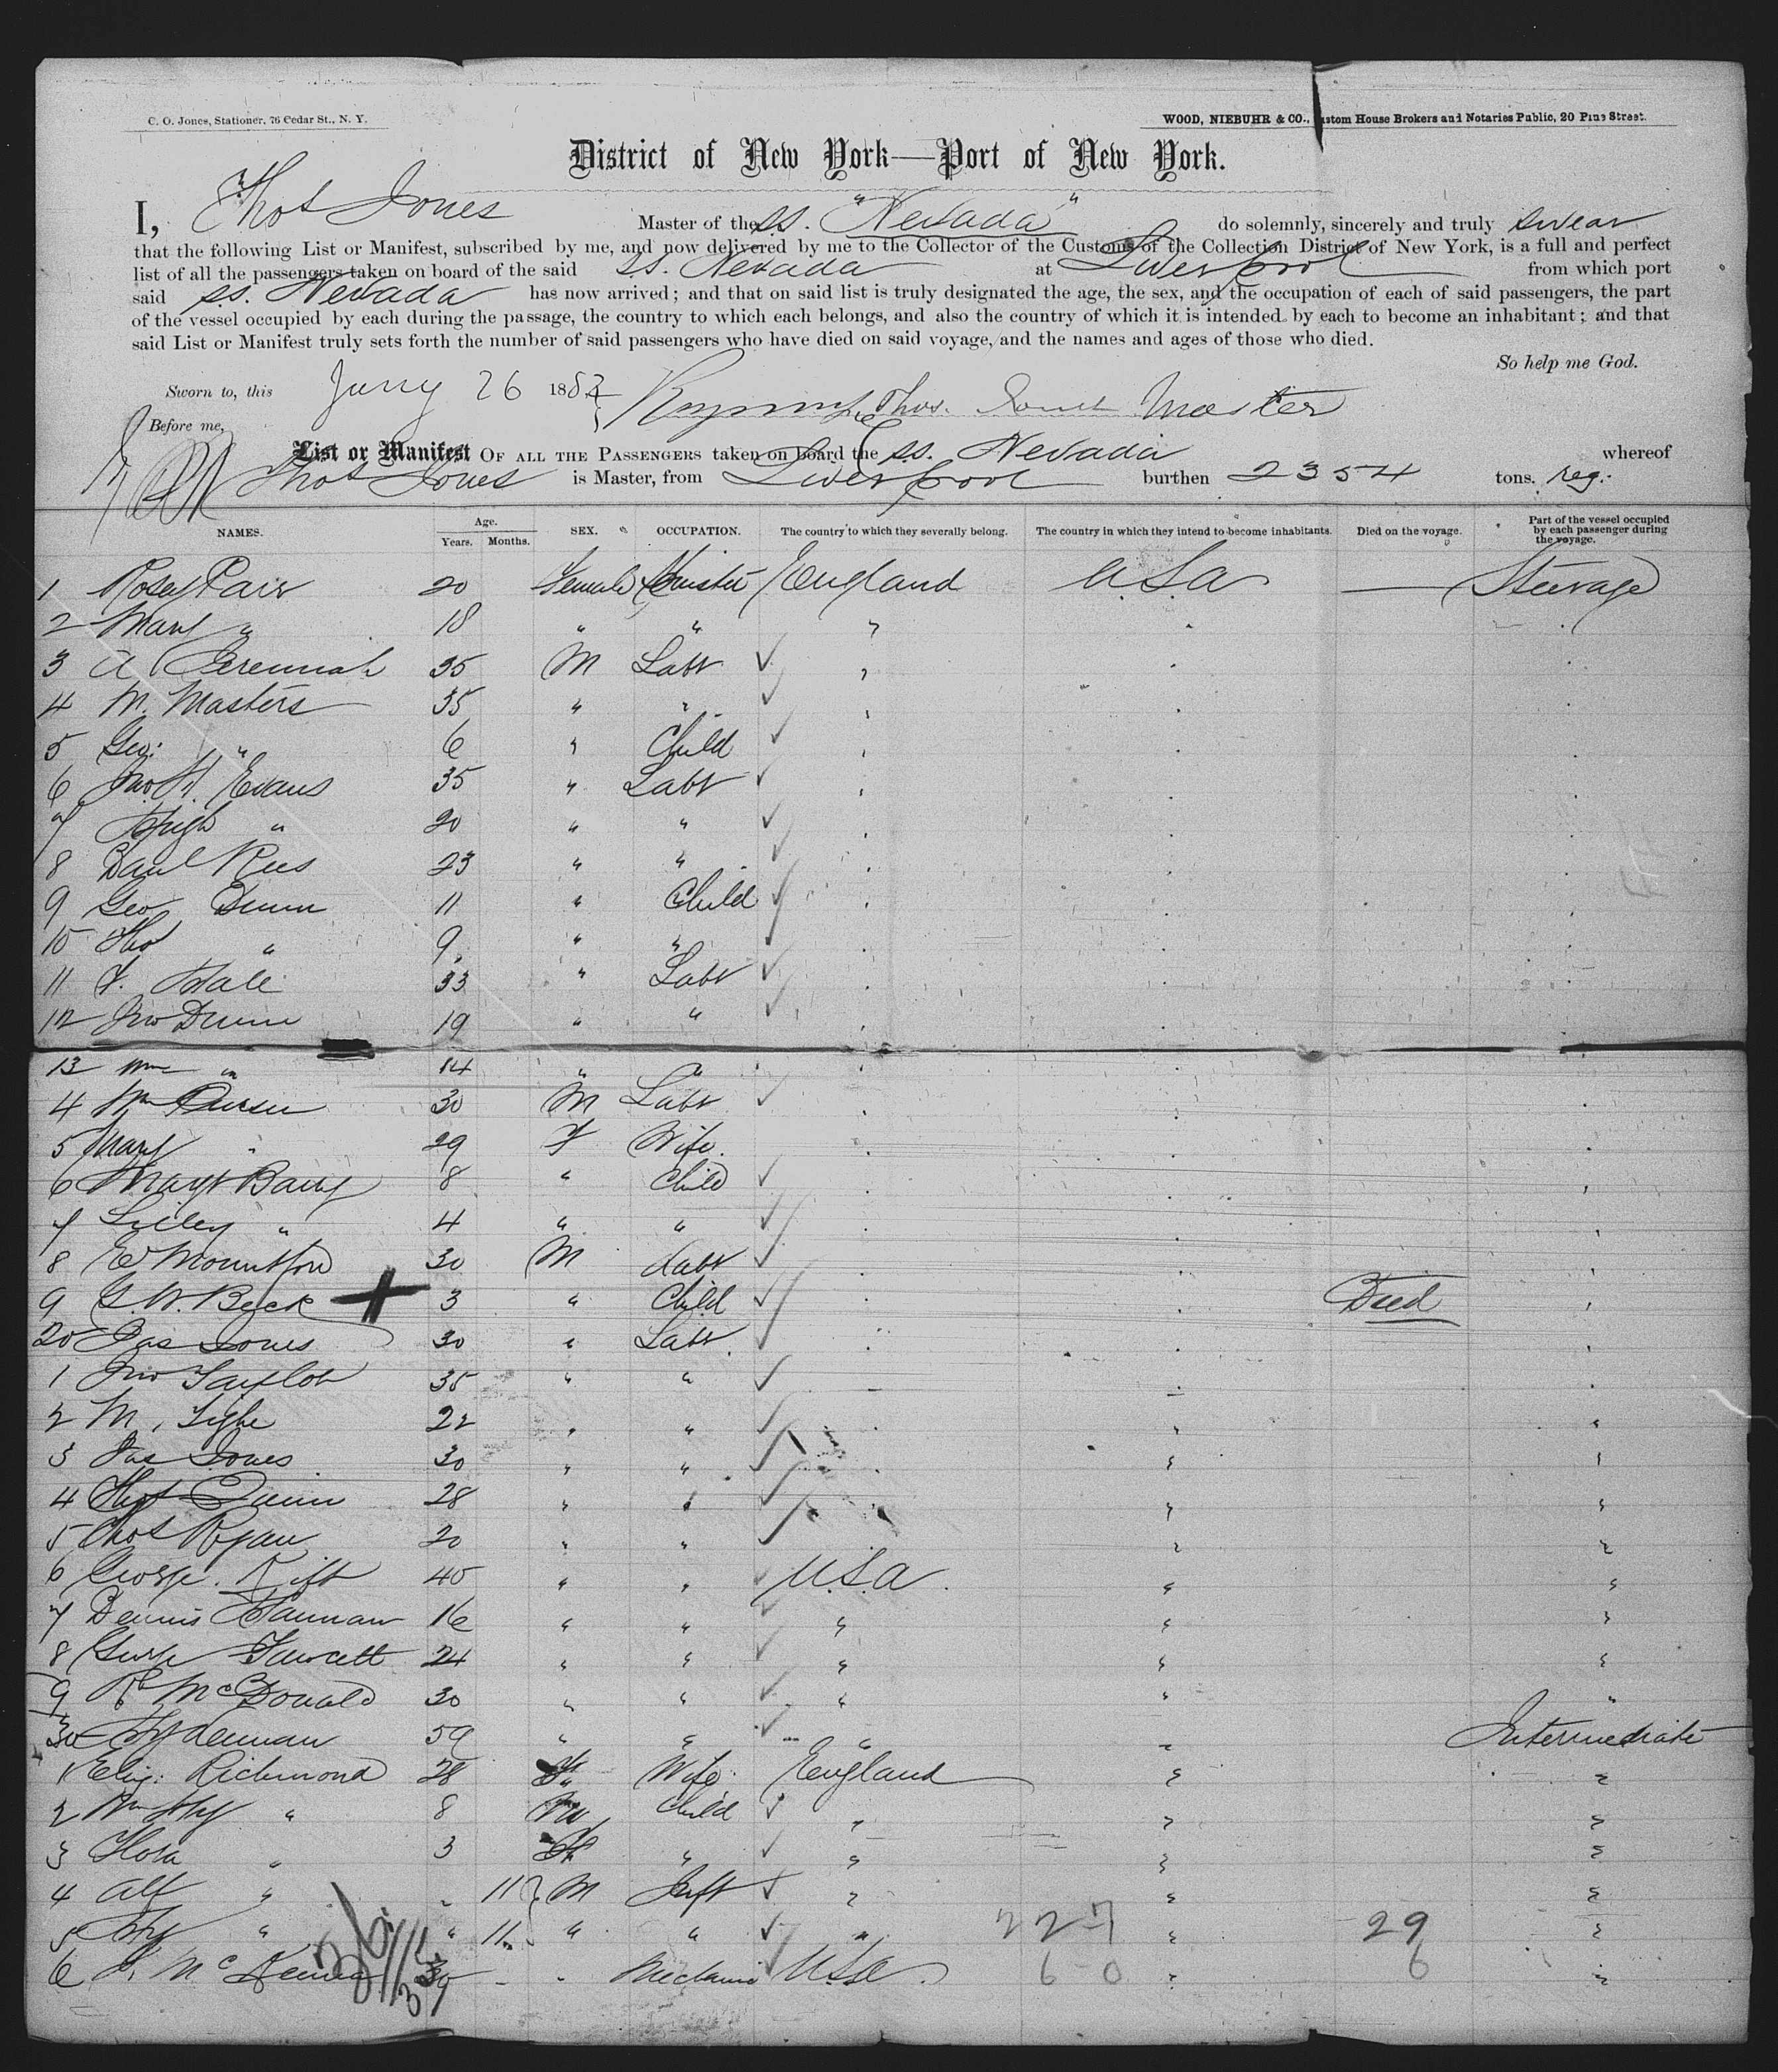 C. O. Jones, Stationer, 76 Cedar St., N. Y.
WOOD, NIEBUHR & CO., Custom House Brokers and Notaries Public, 20 Pine Street.
District of New York—Port of New York.
I, Thos Jones Master of the ss. "Nevada" do solemnly, sincerely and truly swear
that the following List or Manifest, subscribed by me, and now delivered by me to the Collector of the Customs of the Collection District of New York, is a full and perfect
list of all the passengers taken on board of the said ss. Nevada at Liverpool from which port
said ss. Nevada has now arrived; and that on said list is truly designated the age, the sex, and the occupation of each of said passengers, the part
of the vessel occupied by each during the passage, the country to which each belongs, and also the country of which it is intended by each to become an inhabitant; and that
said List or Manifest truly sets forth the number of said passengers who have died on said voyage, and the names and ages of those who died.
So help me God.
Sworn to, this 26 188 Thos. Jones Master
Before me,
List or Manifest OF ALL THE PASSENGERS taken on board the ss. Nevada whereof
Thos Jones is Master, from Liverpool burthen 2354 tons. reg.
NAMES. Age. Years. Months. SEX. OCCUPATION. The country to which they severally belong. The country in which they intend to become inhabitants. Died on the voyage. Part of the vessel occupied by each passenger during the voyage.
1 Rosey 20 Female England U.S.A — Steerage
2 Mary " 18 " " "
3 A Jeremiah 35 M Labr "
4 M. Masters 35 " " "
5 Geo: " 6 " Child "
6 Jno. H. Evans 35 " Labr "
7 Hugh " 20 " " "
8 Danl Rees 23 " " "
9 Geo Dunn 11 " Child "
10 Tho " 9 " " "
11 F. Hale 33 " Labr "
12 Jno Dunn 19 " " "
13 Wm " 14 " "
4 Wm 30 M Labr
5 Mary " 29 F Wife
6 Mary Barry 8 " Child
7 Lilley " 4 " "
8 E Mountford 30 M Labr
9 G. W. Beck + 3 " Child Died
20 Jas Jones 30 " Labr
1 Jno Taylor 35 " "
2 M. Tighe 22 " "
3 Jas Jones 30 " "
4 Thos Quinn 28 " "
5 Thos Ryan 20 " "
6 George. Kift 40 " " U.S.A.
7 Dennis Hannan 16 " " "
8 George Fawcett 24 " " "
9 R McDonald 30 " " " "
30 59 " " " Intermediate
1 Eliz: Richmond 28 F Wife England "
2 Wm Hy " 8 M Child " "
3 Flora " 3 F " " "
4 Alf " " 11 M Inft " "
5 Hy " " 11 " " " 227 29 "
6 Mc " U.S.A. 6 0 6 "